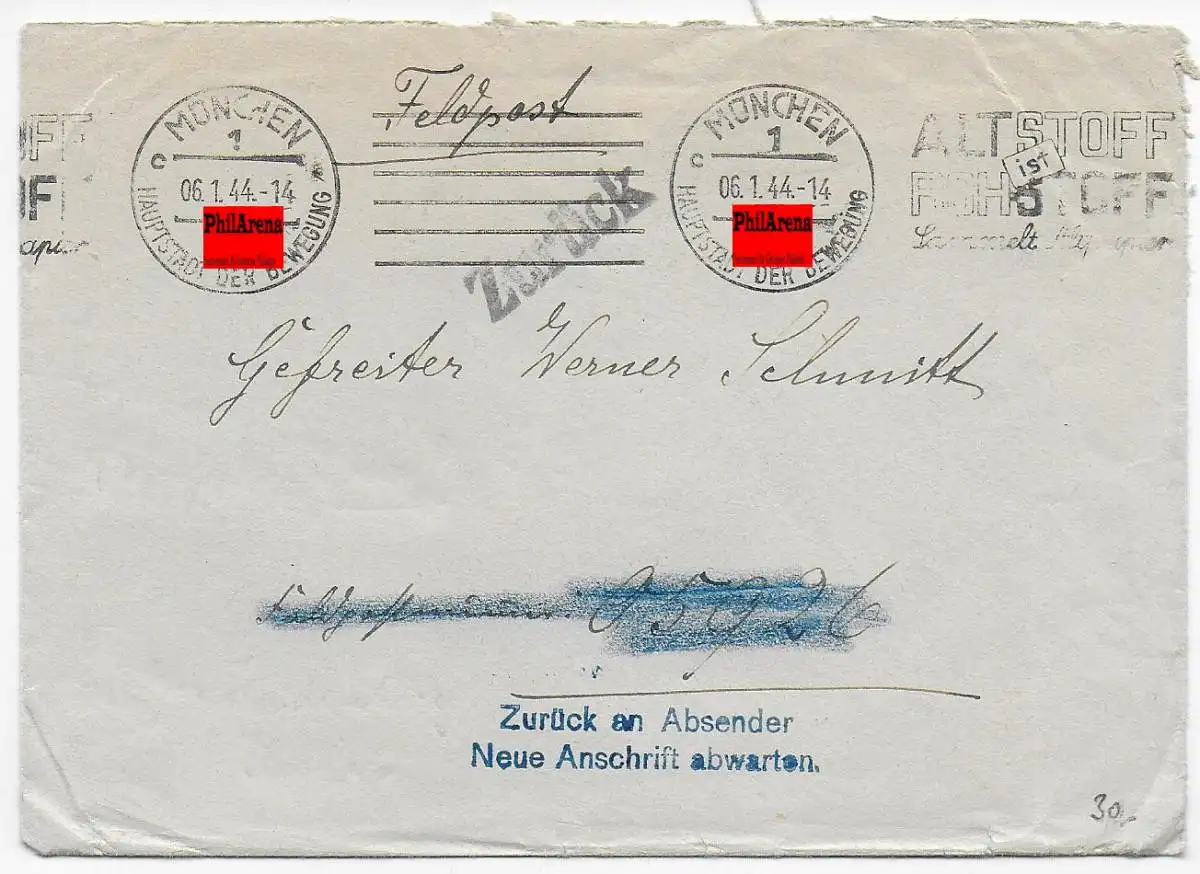 Feldpost
MÜNCHEN
1
c
06.1.44.-14
HAUPTSTADT DER BEWEGUNG
PhilArena
MÜNCHEN
1
c
06.1.44.-14
HAUPTSTADT DER BEWEGUNG
PhilArena
ALTSTOFF
ist
ROHSTOFF
Sammelt Altpapier
Zurück
Gefreiter Werner Schmitt
Feldpostnummer 05926
Zurück an Absender
Neue Anschrift abwarten.
30,-